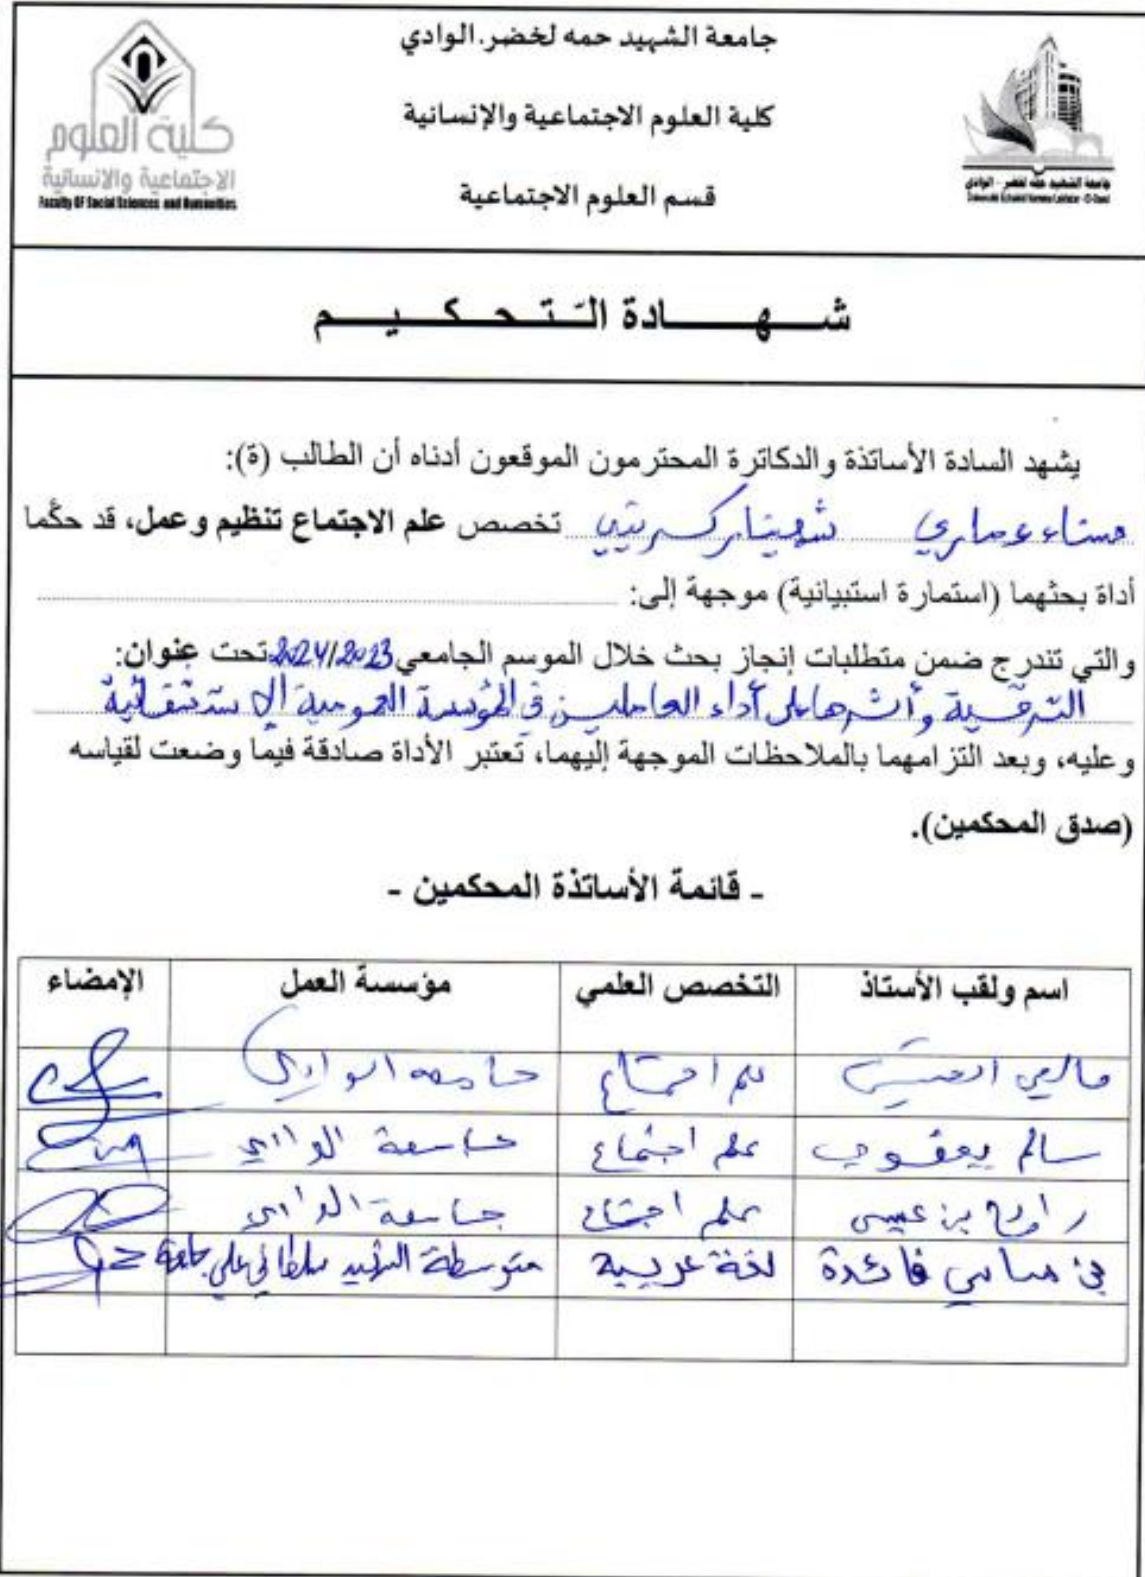 جامعة الشهيد حمه لخضر.الوادي
كلية العلوم الاجتماعية والإنسانية
قسم العلوم الاجتماعية
كلية العلوم
الاجتماعية والانسانية
Faculty OF Social Sciences and Humanities
جامعة الشهيد حمه لخضر - الوادي
Université Echahid Hamma Lakhdar - El-Oued
شهادة التّحكيم
يشهد السادة الأساتذة والدكاترة المحترمون الموقعون أدناه أن الطالب (ة):
هناء عماري شهيناز تخصص علم الاجتماع تنظيم وعمل، قد حكّما
أداة بحثهما (استمارة استبيانية) موجهة إلى:
والتي تندرج ضمن متطلبات إنجاز بحث خلال الموسم الجامعي 2023/2024 تحت عنوان:
الترقية وأثرها على أداء العاملين في المؤسسة العمومية الإستشفائية
وعليه، وبعد التزامهما بالملاحظات الموجهة إليهما، تعتبر الأداة صادقة فيما وضعت لقياسه
(صدق المحكمين).
- قائمة الأساتذة المحكمين -
اسم ولقب الأستاذ التخصص العلمي مؤسسة العمل الإمضاء
علم اجتماع جامعة الوادي
سالم يعقوب علم اجتماع جامعة الوادي
رابح بن عيسى علم اجتماع جامعة الوادي
فائدة لغة عربية متوسطة الشهيد سلطاني علي جامعة